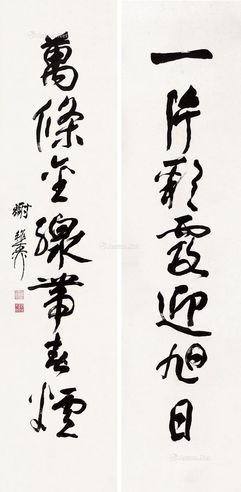 一片彩霞迎旭日
萬條金線帶春煙
謝稚柳